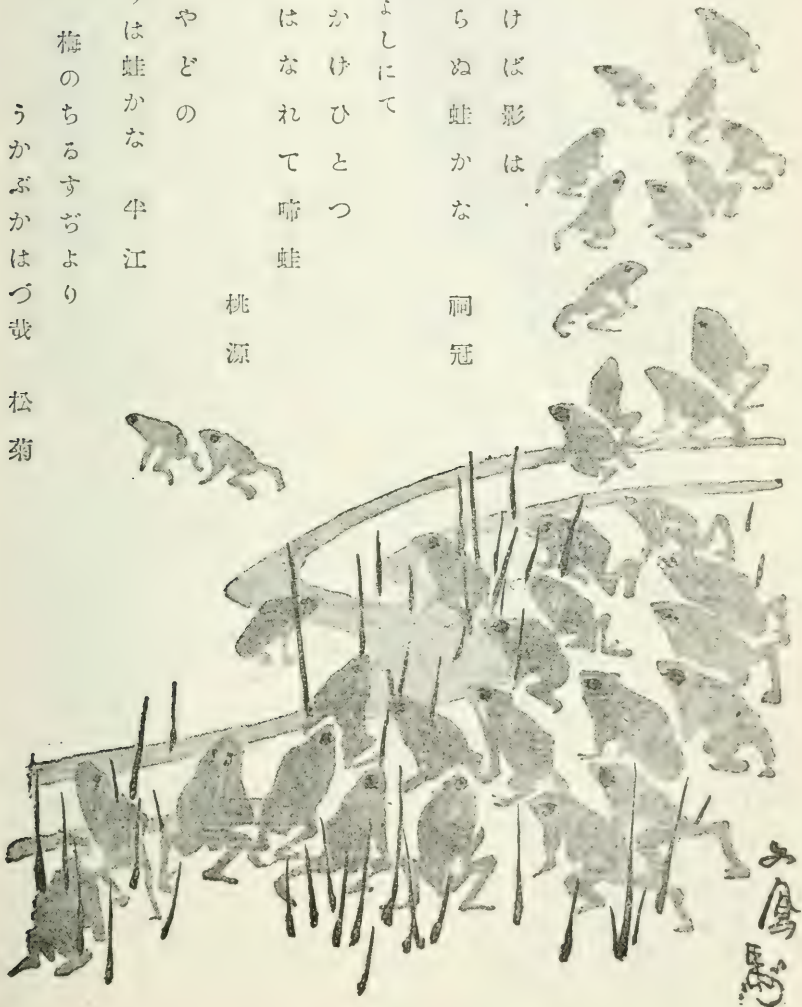 けば影は
らぬ蛙かな 祠冠
よしにて
かけひとつ
はなれて啼蛙
桃源
やどの
は蛙かな 半江
梅のちるすぢより
うかぶかはづ哉 松菊
文鳳